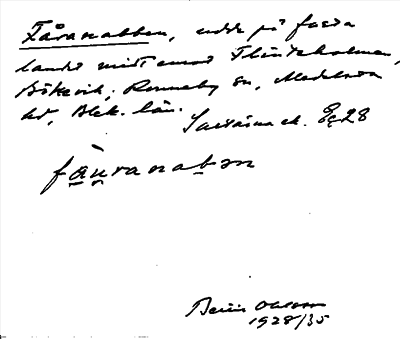 Fåranabben, udde på fasta
landet mitt emot Flinteholmen,
Bökevik, Ronneby sn, Medelsta
hd, Blek. län.
Saxäma ek. Eg 28
fåu̯ranabən
Bengt Olsson
1928/35